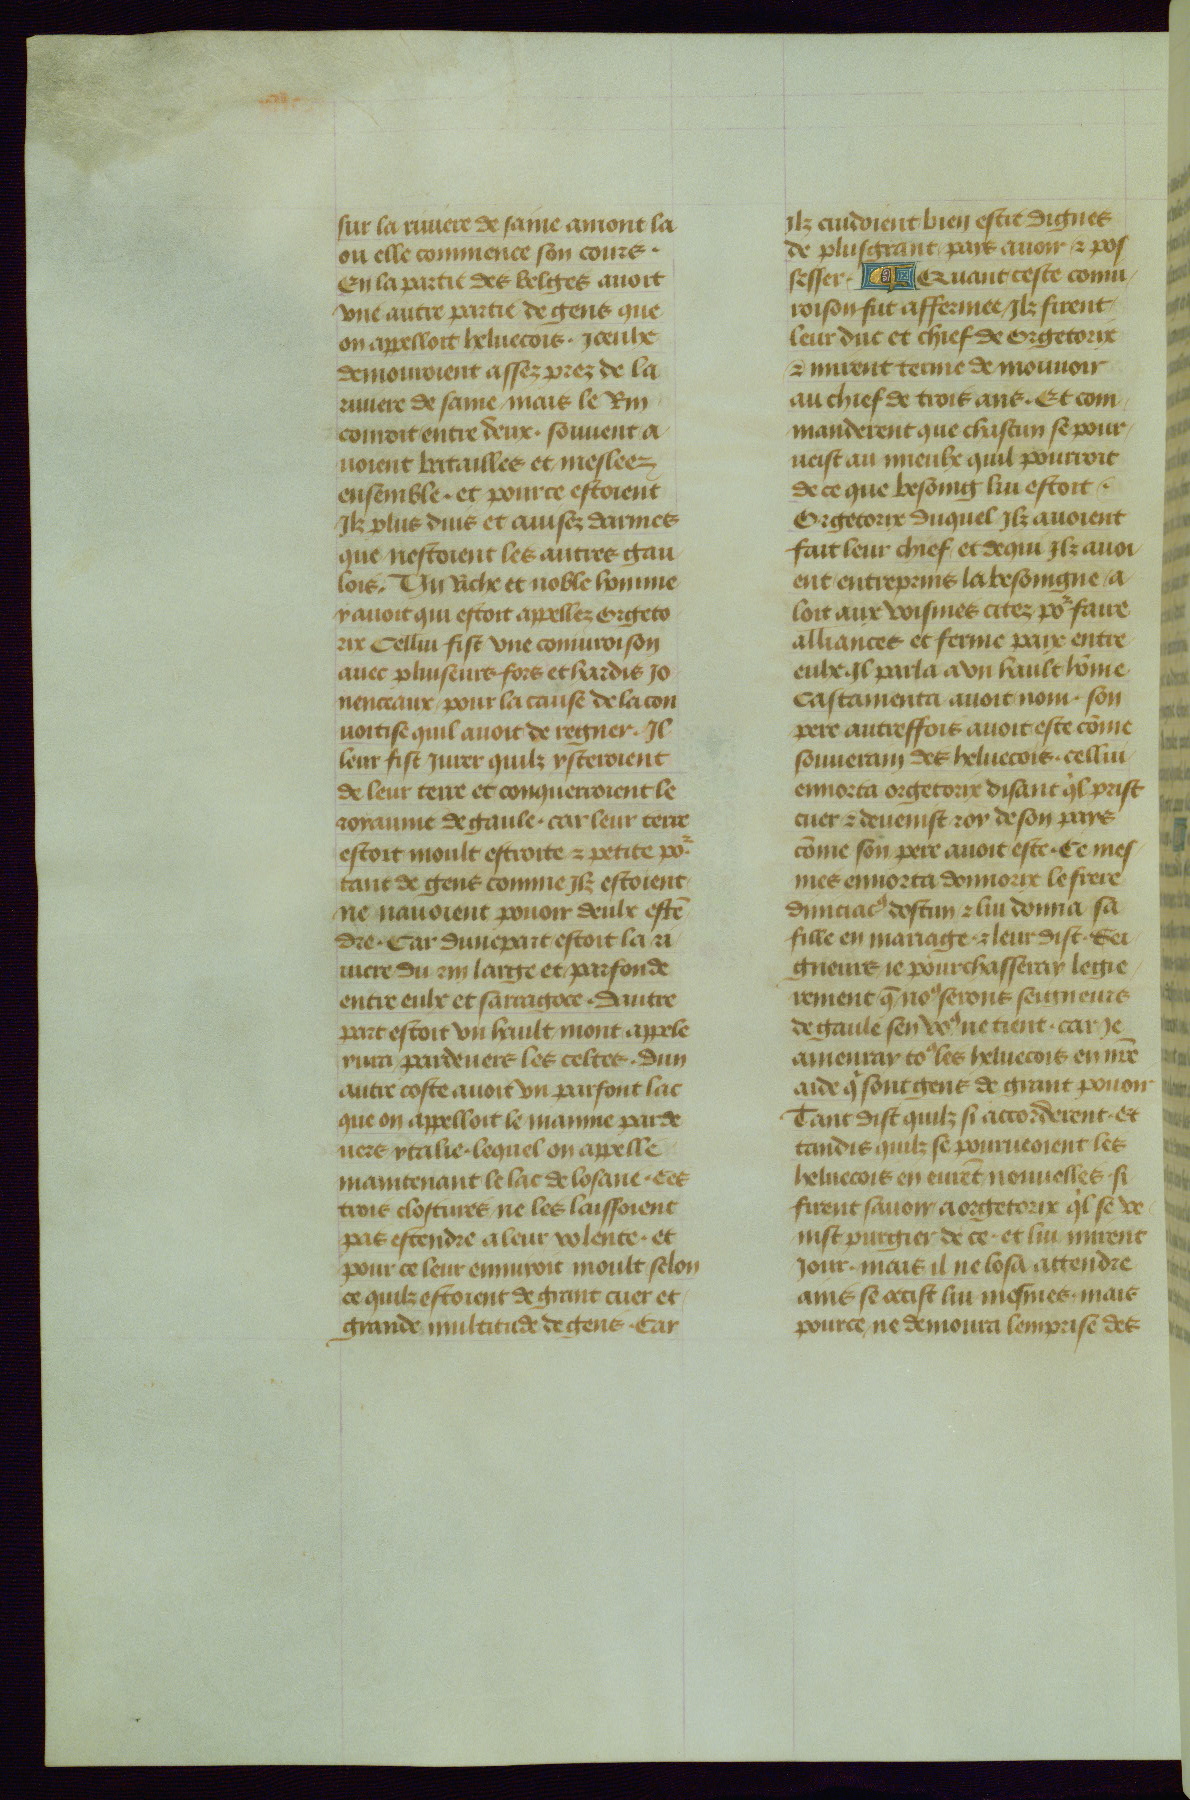 sur la riuiere de saine amont la
ou elle commence son cours .
En la partie des belges auoit
vne autre partie de gens que
on appelloit heluecois . Iceulx
demouroient assez prez de la
riuiere de saine / mais le Rin
couroit entre deux . souuent a
uoient batailles et meslees
ensemble . et pource estoient
Ilz plus duis et auisez darmes
que nestoient les autres gau
lois . Un riche et noble homme
y auoit qui estoit appellez orgeto
rix Cellui fist vne coniuroison
auec pluiseurs fors et hardis Io
uenceaux / pour la cause de la con
uoitise quil auoit de regner . Il
leur fist Iurer quilz ysteroient
de leur terre et conquerroient le
royaume de gaule . car leur terre
estoit moult estroite ⁊ petite poᷣ
tant de gens comme Ilz estoient
ne nauoient pouoir deulx estē
dre . Car dunepart estoit la ri
uiere du rin large et parfonde
entre eulx et sarragoce . Dautre
part estoit vn hault mont appele
yura pardeuers les celtes . Dun
autre coste auoit vn parfont lac
que on appelloit le manne parde
uers ytalie . lequel on appelle
maintenant le lac de losane . Ces
trois clostures ne les laissoient
pas estendre a leur volente . et
pour ce leur ennuioit moult selon
ce quilz estoient de grant cuer et
grande multitude de gens . Car
Ilz cuidoient bien estre dignes
de plusgrant pays auoir ⁊ pos
sesser . QQuant ceste coniu
roison fut affermee / Ilz firent
leur duc et chief de Orgetorix
⁊ mirent terme de mouuoir
au chief de trois ans . Et com
manderent que chascun se pour
ueist au mieulx quil pourroit
de ce que besoing lui estoit .
Orgetorix duquel Ilz auoient
fait leur chief et dequi Ilz auoi
ent entreprins la besoingne / a
loit aux voisines citez poᷣ faire
alliances et ferme paix entre
eulx . Il parla a vn hault hōme
Castamenta auoit nom . son
pere autreffois auoit este cōme
souuerain des heluecois . cellui
ennorta orgetorix disant qͥl prist
cuer ⁊ deuenist roy de son pays
cōme son pere auoit este . Ce mes
mes ennorta donnorix le frere
diuiciacꝰ dostun ⁊ lui donna sa
fille en mariage . ⁊ leur dist . Sei
gneurs ie pourchasseray legie
rement q̄ noꝰ serons seigneurs
de gaule sen voꝰ ne tient . car Ie
amenray toꝰ les heluecois en nr̄e
aide qͥ sont gens de grant pouoir
Tant dist quilz si accorderent . Et
tandis quilz se pourueoient les
heluecois en eurēt nouuelles . si
firent sauoir a orgetorix qͥl se ve
nist purgier de ce . et lui mirent
Iour . mais il ne losa attendre
ains se occist lui mesmes . mais
pource ne demoura lemprise des